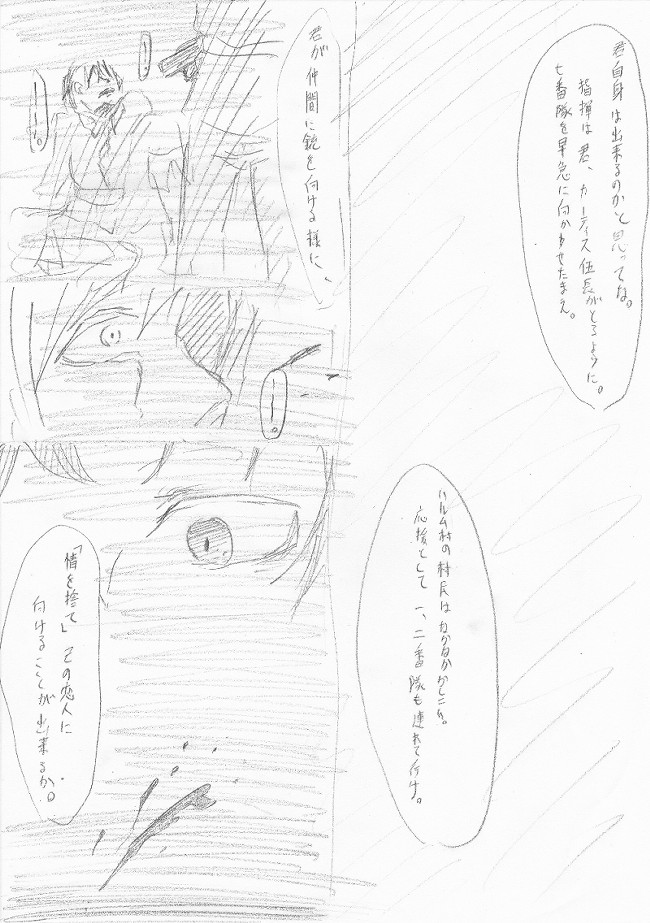 君自身は出来るのかと思ってな。
指揮は君、カーティス伍長がとるように。
七番隊を早急に向かわせたまえ。
ハルム村の村民はなかなかかしこい。
応援として一、二番隊も連れて行け。
君が仲間に銃を向ける様に、
「情を捨て」その恋人に
向けることが出来るか。